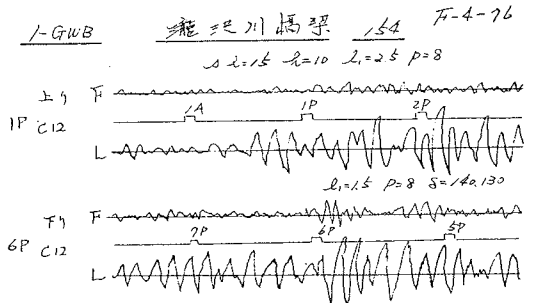 1-GWB 瀧沢川橋梁 154 F-4-76
i=15 h=10 l₁=25 P=8
上り F
1A 1P 2P
1P C12
L
l₁=15 P=8 δ=140.130
下り F
7P 6P 5P
6P C12
L